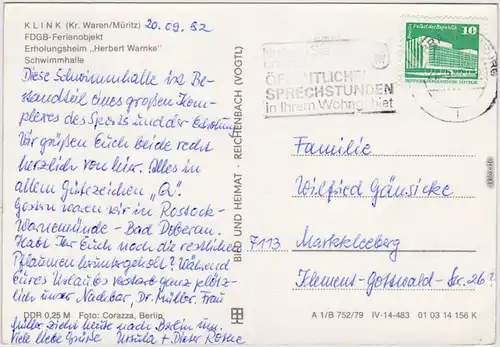 KLINK (Kr. Waren/Müritz) 20.09.82
FDGB-Ferienobjekt
Erholungsheim „Herbert Warnke"
Schwimmhalle
Diese Schwimmhalle ist Be-
standteil eines großen Kom-
plexes des Sports und der Erholung.
Wir grüßen Euch beide recht
herzlich von hier. Alles in
allem Gütezeichen „Q".
Gestern waren wir in Rostock-
Warnemünde - Bad Doberan.
Habt Ihr Euch noch die restlichen
Pflaumen heruntergeholt? Während
Eures Urlaubs verstarb ganz plötz-
lich unser Nachbar, Dr. Müller. Frau
Müller zieht heute nach Berlin um.
Viele liebe Grüße Ursula + Dieter
DDR 0,25 M Foto: Corazza, Berlin
BILD UND HEIMAT · REICHENBACH (VOGTL)
ÖFFENTLICHEN
SPRECHSTUNDEN
in Ihrem Wohngebiet
Palast der Republik
10
Familie
Wilfried Gänsicke
7113 Markkleeberg
Klement-Gottwald-Str. 26
A 1/B 752/79 IV-14-483 01 03 14 156 K